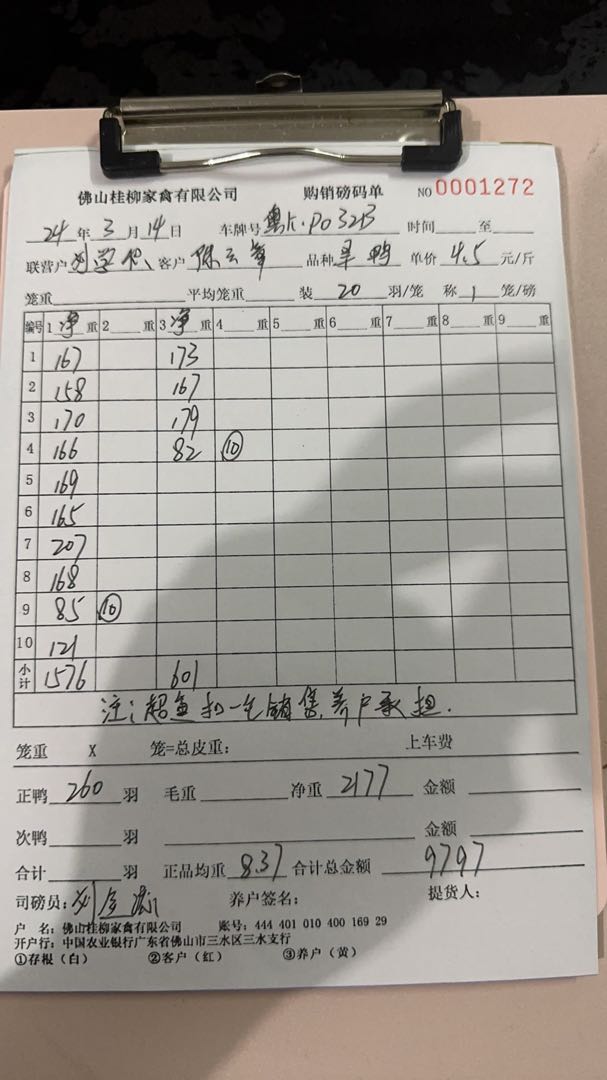 佛山桂柳家禽有限公司 购销磅码单 NO 0001272
24 年 3 月 14 日 车牌号 粤 P0323 时间 至
联营户 刘学 客户 陈云 品种 旱鸭 单价 4.5 元/斤
笼重 平均笼重 装 20 羽/笼 称 1 笼/磅
编号 1 净 重 2 重 3 净 重 4 重 5 重 6 重 7 重 8 重 9 重
1 167 173
2 158 167
3 170 179
4 166 82 ⑩
5 169
6 165
7 207
8 168
9 85 ⑩
10 121
小计 1576 601
注: 超重扣一毛销售,养户承担.
笼重 X 笼=总皮重: 上车费
正鸭 260 羽 毛重 净重 2177 金额
次鸭 羽 金额
合计 羽 正品均重 8.37 合计总金额 9797
司磅员: 刘 养户签名: 提货人:
户 名: 佛山桂柳家禽有限公司 账号: 444 401 010 400 169 29
开户行: 中国农业银行广东省佛山市三水区三水支行
①存根(白) ②客户(红) ③养户(黄)